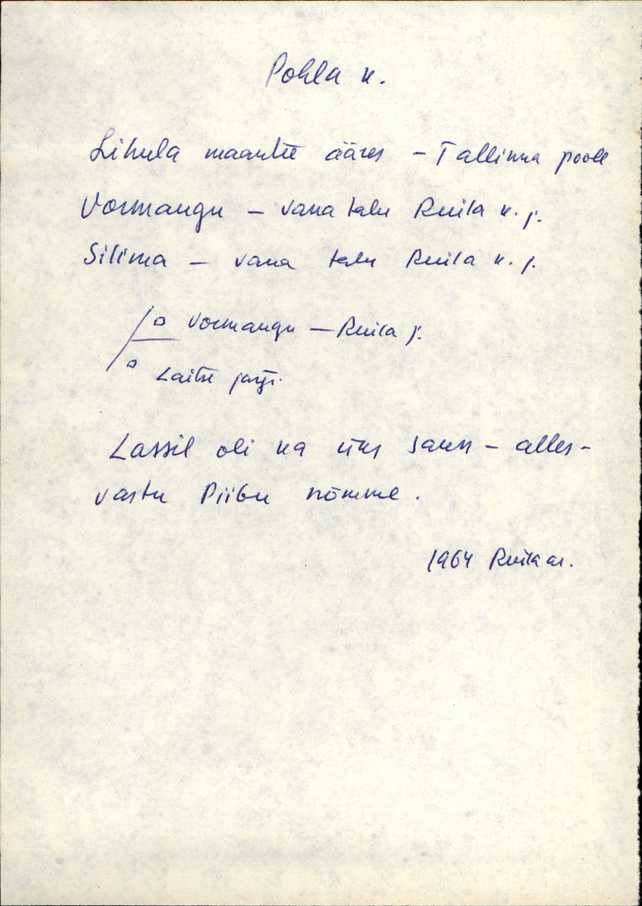 Pohla k.
Lihula maantee ääres - Tallinna poole
Vormangu - vana talu Ruila k. j.
Silima - vana talu Ruila k. j.
Vormangu - Ruila j.
Laitse järgi.
Lassil oli ka üks saun - alles -
vastu Piibu nõmme.
1964 Ruilas.